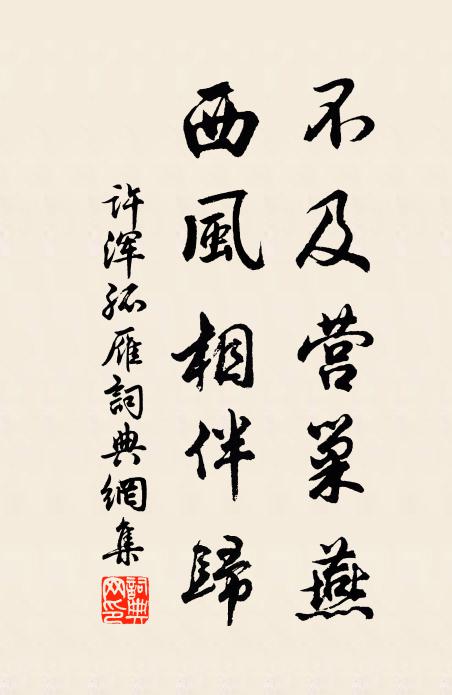 不及营巢燕
西風相伴歸
许浑孤雁詞典網集
詞典網印